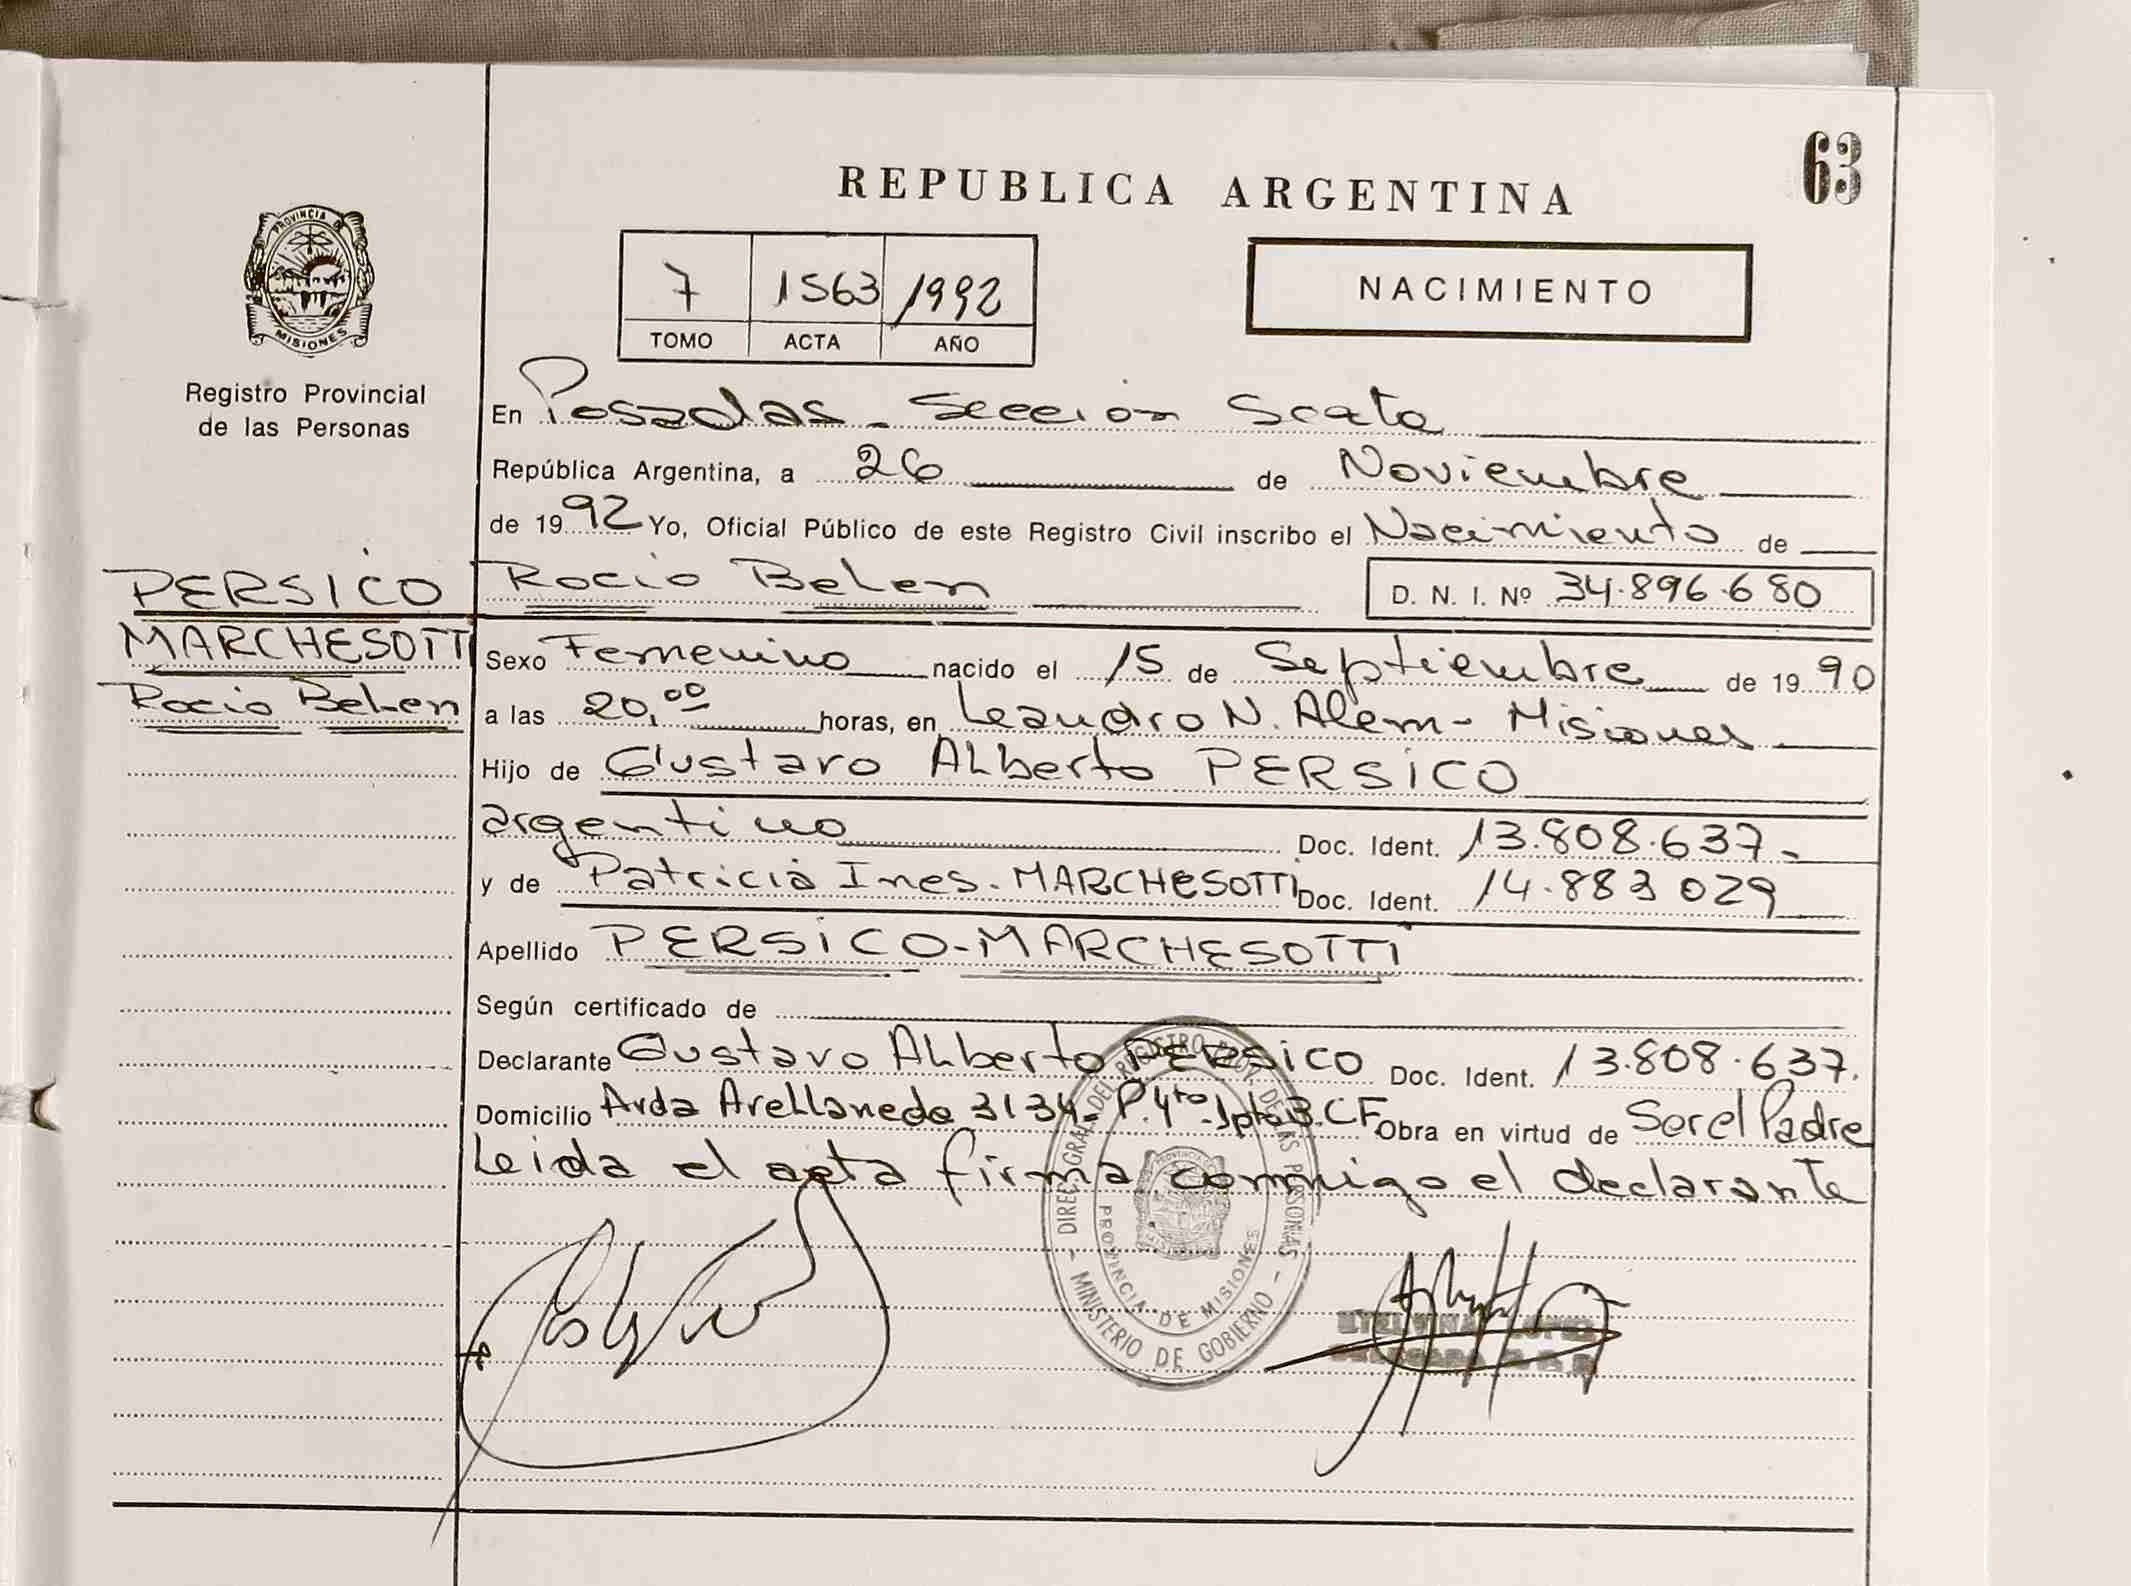 63
REPUBLICA ARGENTINA
PROVINCIA DE
MISIONES
Registro Provincial
de las Personas
7 1563 1992
TOMO ACTA AÑO
NACIMIENTO
En Posadas - Sección Sexta
República Argentina, a 26 de Noviembre
de 1992 Yo, Oficial Público de este Registro Civil inscribo el Nacimiento de
PERSICO
MARCHESOTTI
Rocio Belen
Rocio Belen D. N. I. Nº 34.896.680
Sexo Femenino nacido el 15 de Septiembre de 1990
a las 20,00 horas, en Leandro N. Alem - Misiones
Hijo de Gustavo Alberto PERSICO
argentino Doc. Ident. 13.808.637-
y de Patricia Ines. MARCHESOTTI Doc. Ident. 14.883 029
Apellido PERSICO-MARCHESOTTI
Según certificado de
Declarante Gustavo Alberto PERSICO Doc. Ident. 13.808.637.
Domicilio Avda Avellaneda 3134- P.4to-Dpto B.CF Obra en virtud de Ser el Padre
Leida el acta firma conmigo el declarante
DIREC. GRAL. DEL REGISTRO PROV. DE LAS PERSONAS
PROVINCIA DE MISIONES
- MINISTERIO DE GOBIERNO -